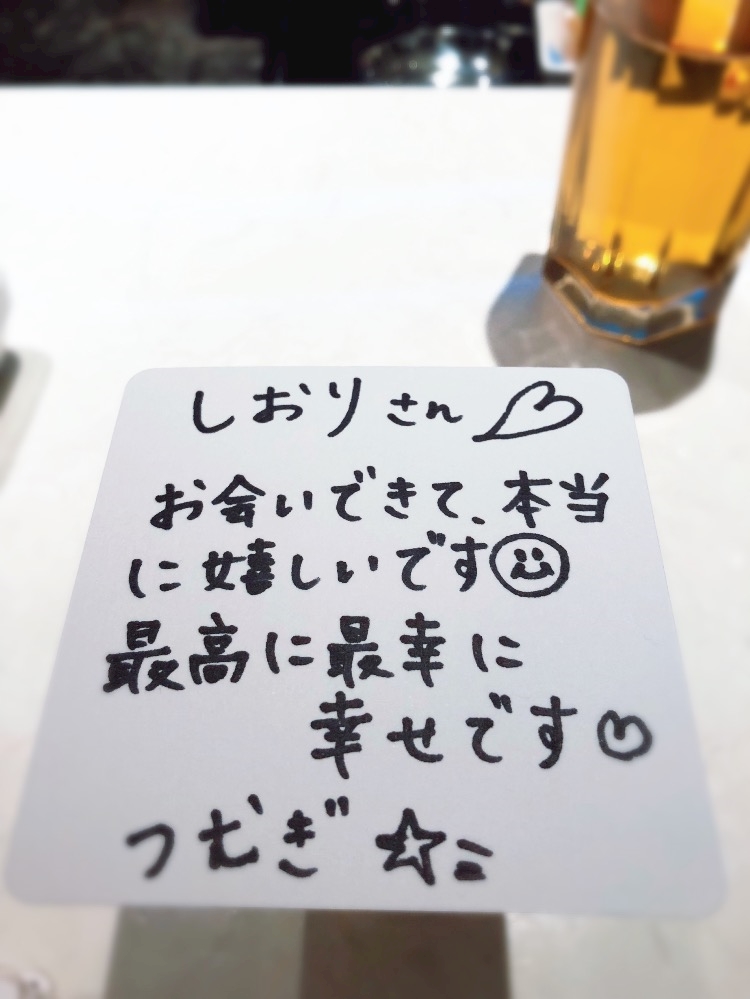 しおりさん♡
お会いできて、本当
に嬉しいです☺
最高に最幸に
幸せです♡
つむぎ☆=